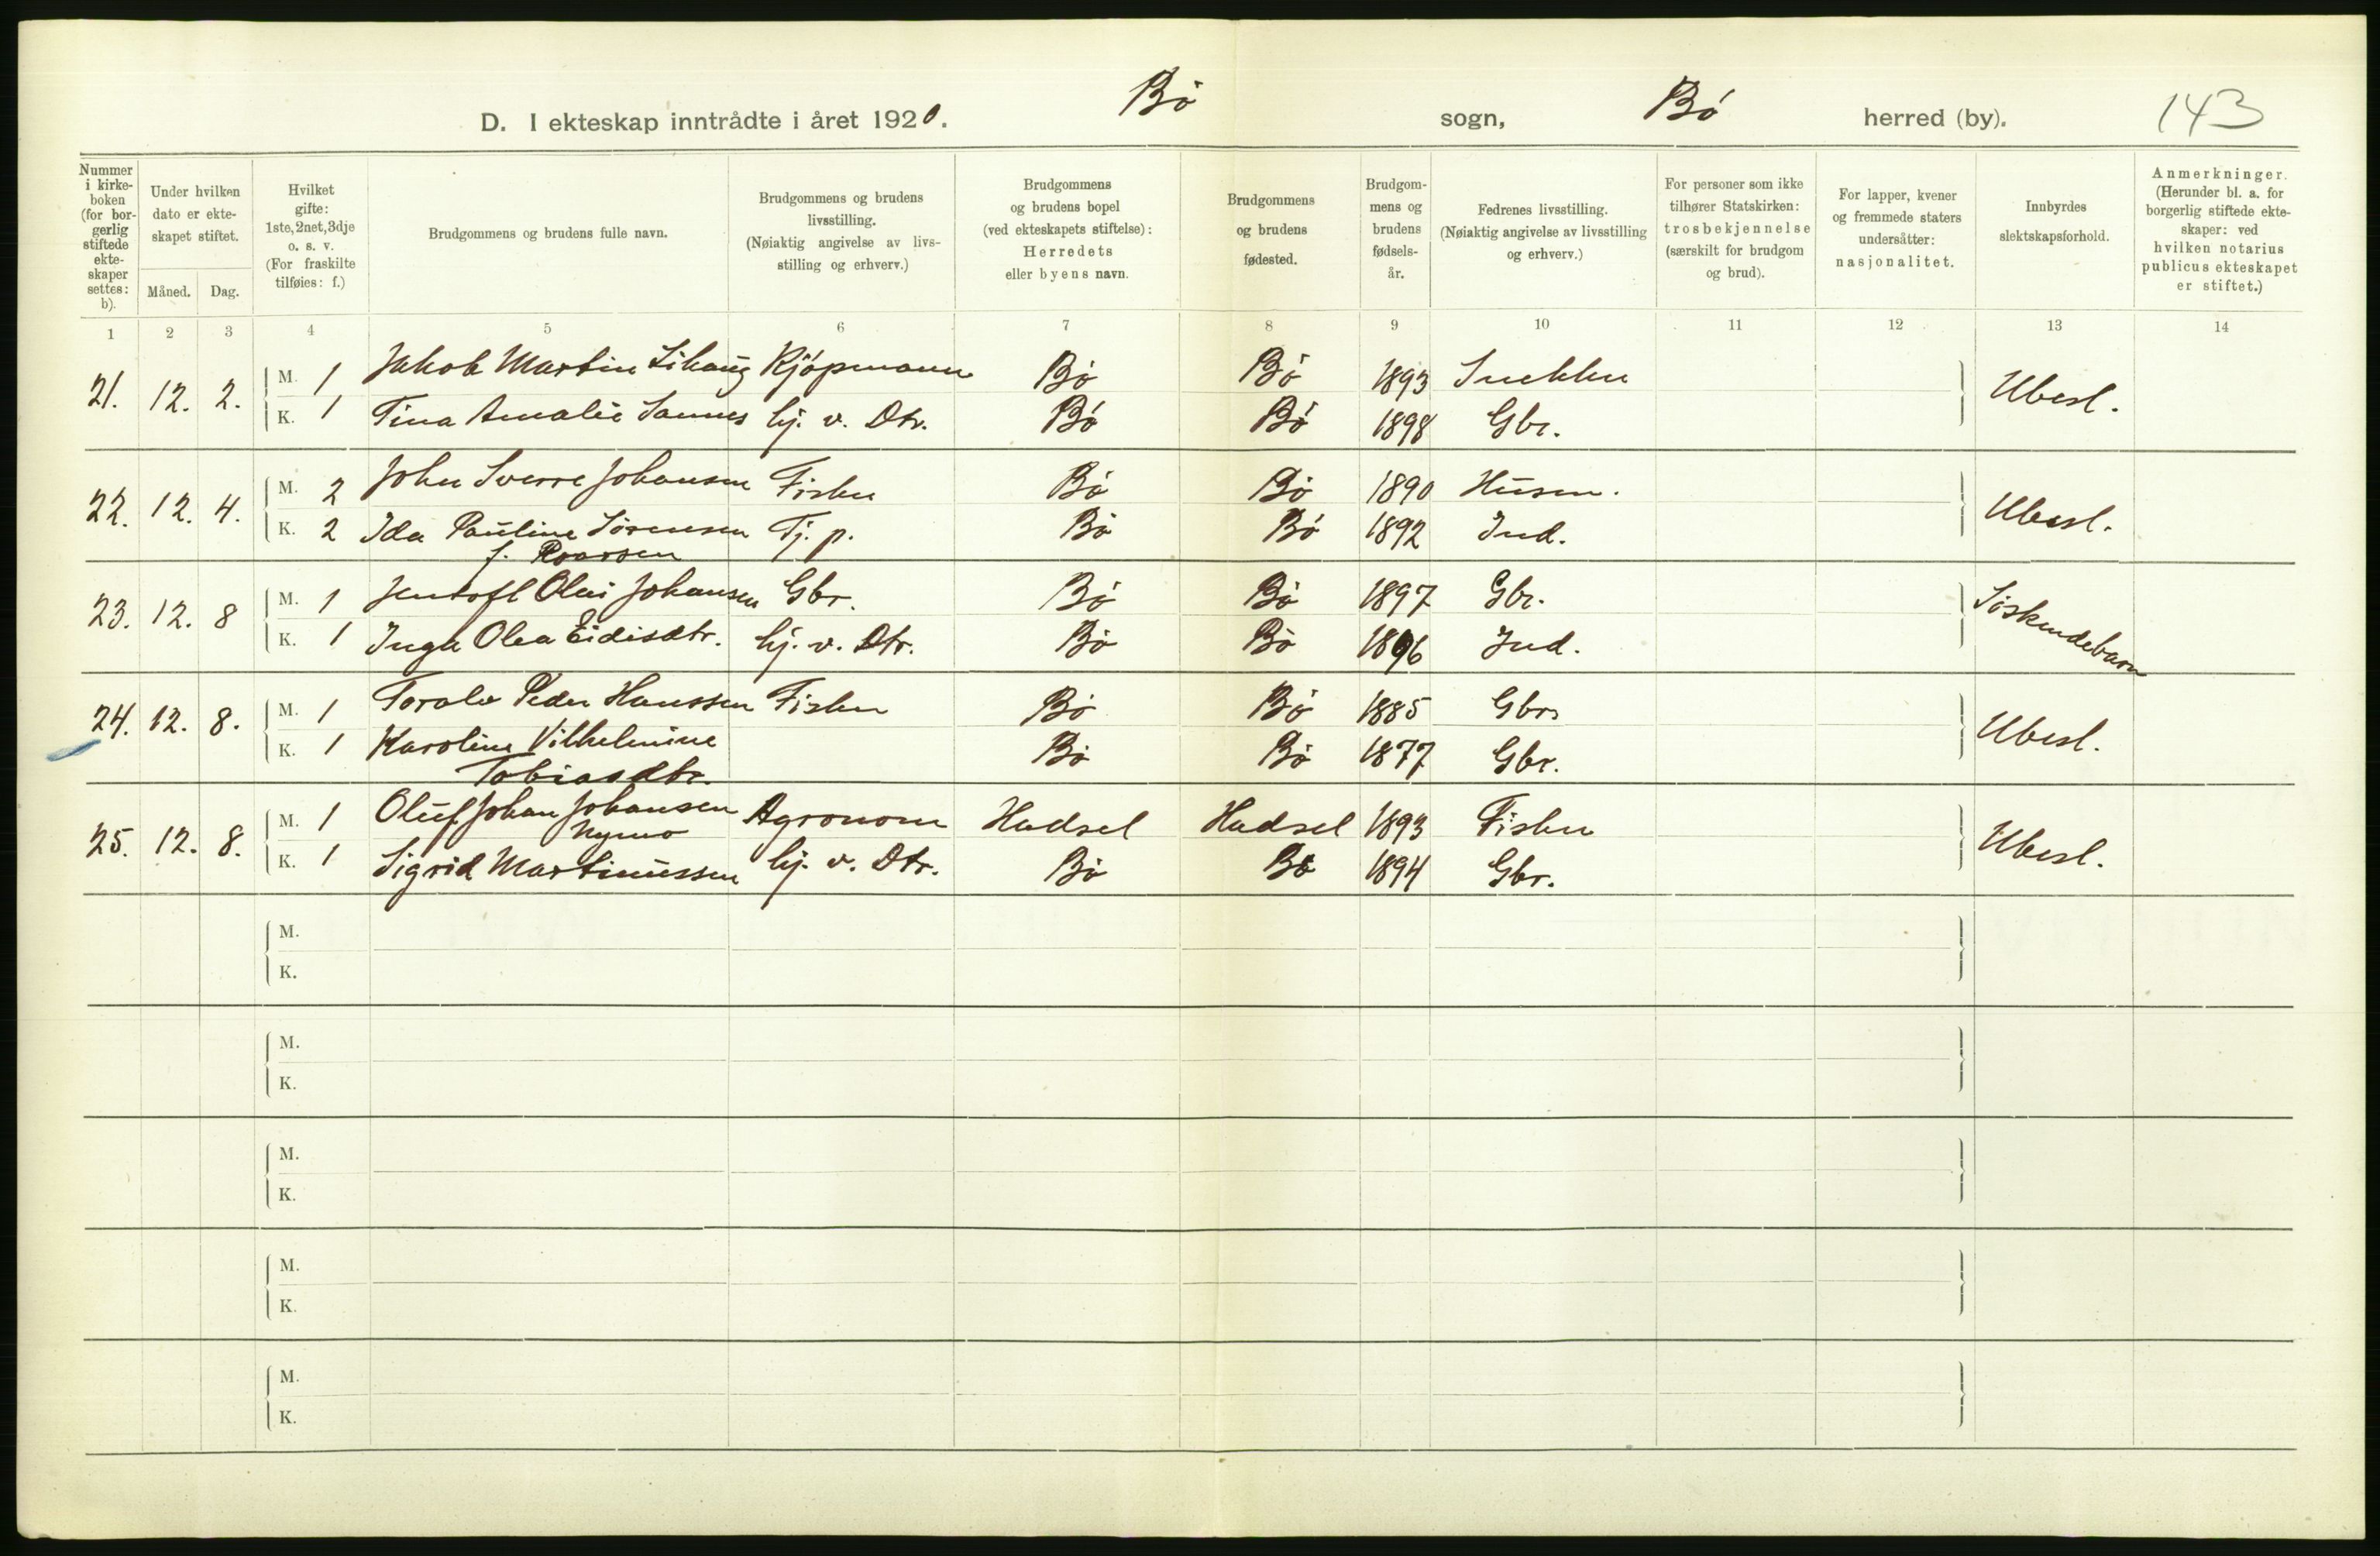 D. I ekteskap inntrådte i året 1920. Bø sogn, Bø herred (by). 143
Nummer i kirkeboken (for borgerlig stiftede ekteskaper settes: b).
Under hvilken dato er ekteskapet stiftet.
Måned. Dag.
Hvilket gifte: 1ste, 2net, 3dje o. s. v. (For fraskilte tilføies: f.)
Brudgommens og brudens fulle navn.
Brudgommens og brudens livsstilling. (Nøiaktig angivelse av livsstilling og erhverv.)
Brudgommens og brudens bopel (ved ekteskapets stiftelse): Herredets eller byens navn.
Brudgommens og brudens fødested.
Brudgommens og brudens fødselsår.
Fedrenes livsstilling. (Nøiaktig angivelse av livsstilling og erhverv.)
For personer som ikke tilhører Statskirken: trosbekjennelse (særskilt for brudgom og brud).
For lapper, kvener og fremmede staters undersåtter: nasjonalitet.
Innbyrdes slektskapsforhold.
Anmerkninger. (Herunder bl. a. for borgerlig stiftede ekteskaper: ved hvilken notarius publicus ekteskapet er stiftet.)
1 2 3 4 5 6 7 8 9 10 11 12 13 14
21. 12. 2. M. 1 Jakob Martin Lihaug Kjøpmann Bø Bø 1893 Snekker Ubesl.
K. 1 Tina Amalie Sannes hj. v. Dtr. Bø Bø 1898 Gbr.
22. 12. 4. M. 2 John Sverre Johansen Fisker Bø Bø 1890 Husm. Ubesl.
K. 2 Ida Pauline Sørensen Tj. p. Bø Bø 1892 Ind.
f. Roarsen
23. 12. 8 M. 1 Jentoft Olai Johansen Gbr. Bø Bø 1897 Gbr. Søskendebarn
K. 1 Inga Olea Eidisdtr. hj. v. Dtr. Bø Bø 1896 Ind.
24. 12. 8. M. 1 Toralv Peder Hanssen Fisker Bø Bø 1885 Gbr. Ubesl.
K. 1 Karoline Vilhelmine Bø Bø 1877 Gbr.
Tobiasdtr.
25. 12. 8. M. 1 Oluf Johan Johansen Agronom Hadsel Hadsel 1893 Fisker Ubesl.
Nymo
K. 1 Sigrid Martinussen hj. v. Dtr. Bø Bø 1894 Gbr.
M.
K.
M.
K.
M.
K.
M.
K.
M.
K.